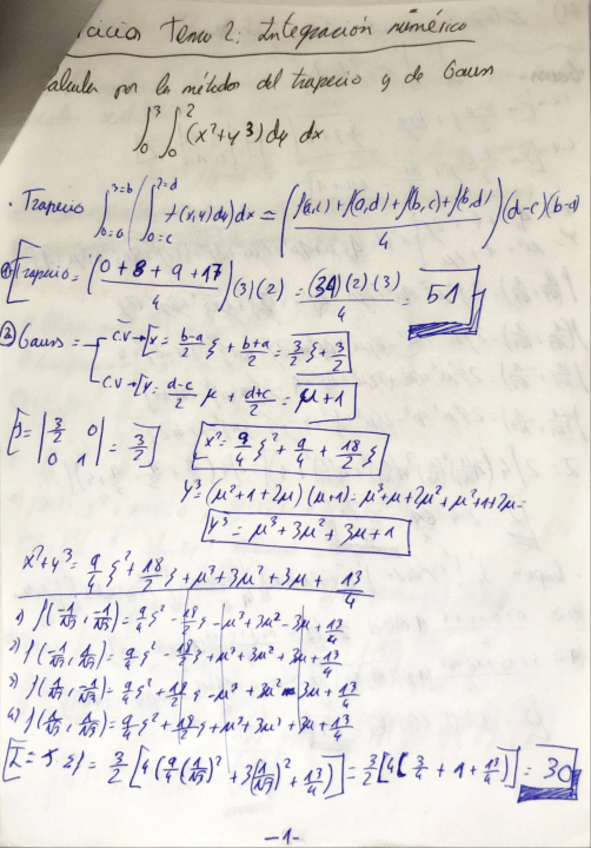 icios Tema 2: Integración numérico
alcula por los métodos del trapecio y de Gauss
∫₀³ ∫₀² (x²+y³) dy dx
· Trapecio ∫_{0=a}^{3=b} (∫_{0=c}^{2=d} f(x,y) dy) dx ≃ ( (f(a,c) + f(a,d) + f(b,c) + f(b,d)) / 4 ) (d-c)(b-a)
① [Trapecio = ( (0+8+9+17) / 4 ) (3)(2) = (34)(2)(3) / 4 = 51
② Gauss = C.V → [x = (b-a)/2 ξ + (b+a)/2 = 3/2 ξ + 3/2
C.V → [y = (d-c)/2 μ + (d+c)/2 = μ+1
[J = | 3/2 0 ; 0 1 | = 3/2] [x² = 9/4 ξ² + 9/4 + 18/2 ξ
y³ = (μ²+1+2μ)(μ+1) = μ³+μ+2μ²+μ²+1+2μ =
y³ = μ³+3μ²+3μ+1
x²+y³ = 9/4 ξ² + 18/2 ξ + μ³ + 3μ² + 3μ + 13/4
1) f(-1/√3, -1/√3) = 9/4 ξ² - 18/2 ξ - μ³ + 3μ² - 3μ + 13/4
2) f(-1/√3, 1/√3) = 9/4 ξ² - 18/2 ξ + μ³ + 3μ² + 3μ + 13/4
3) f(1/√3, -1/√3) = 9/4 ξ² + 18/2 ξ - μ³ + 3μ² - 3μ + 13/4
4) f(1/√3, 1/√3) = 9/4 ξ² + 18/2 ξ + μ³ + 3μ² + 3μ + 13/4
[I = J · Σf = 3/2 [4(9/4 (1/√3)² + 3(1/√3)² + 13/4)] = 3/2 [4(3/4 + 1 + 13/4)] = 30
-1-